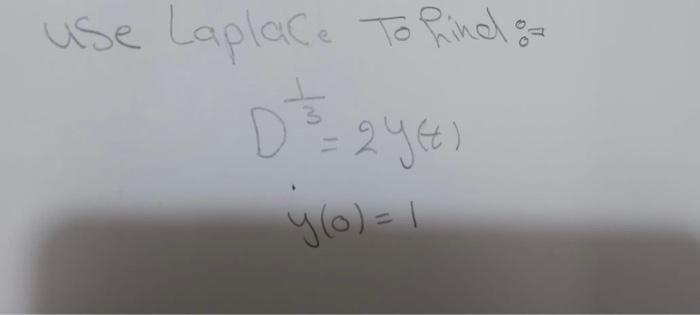 use Laplace To find :-
D^{1/3} = 2y(t)
y(0) = 1